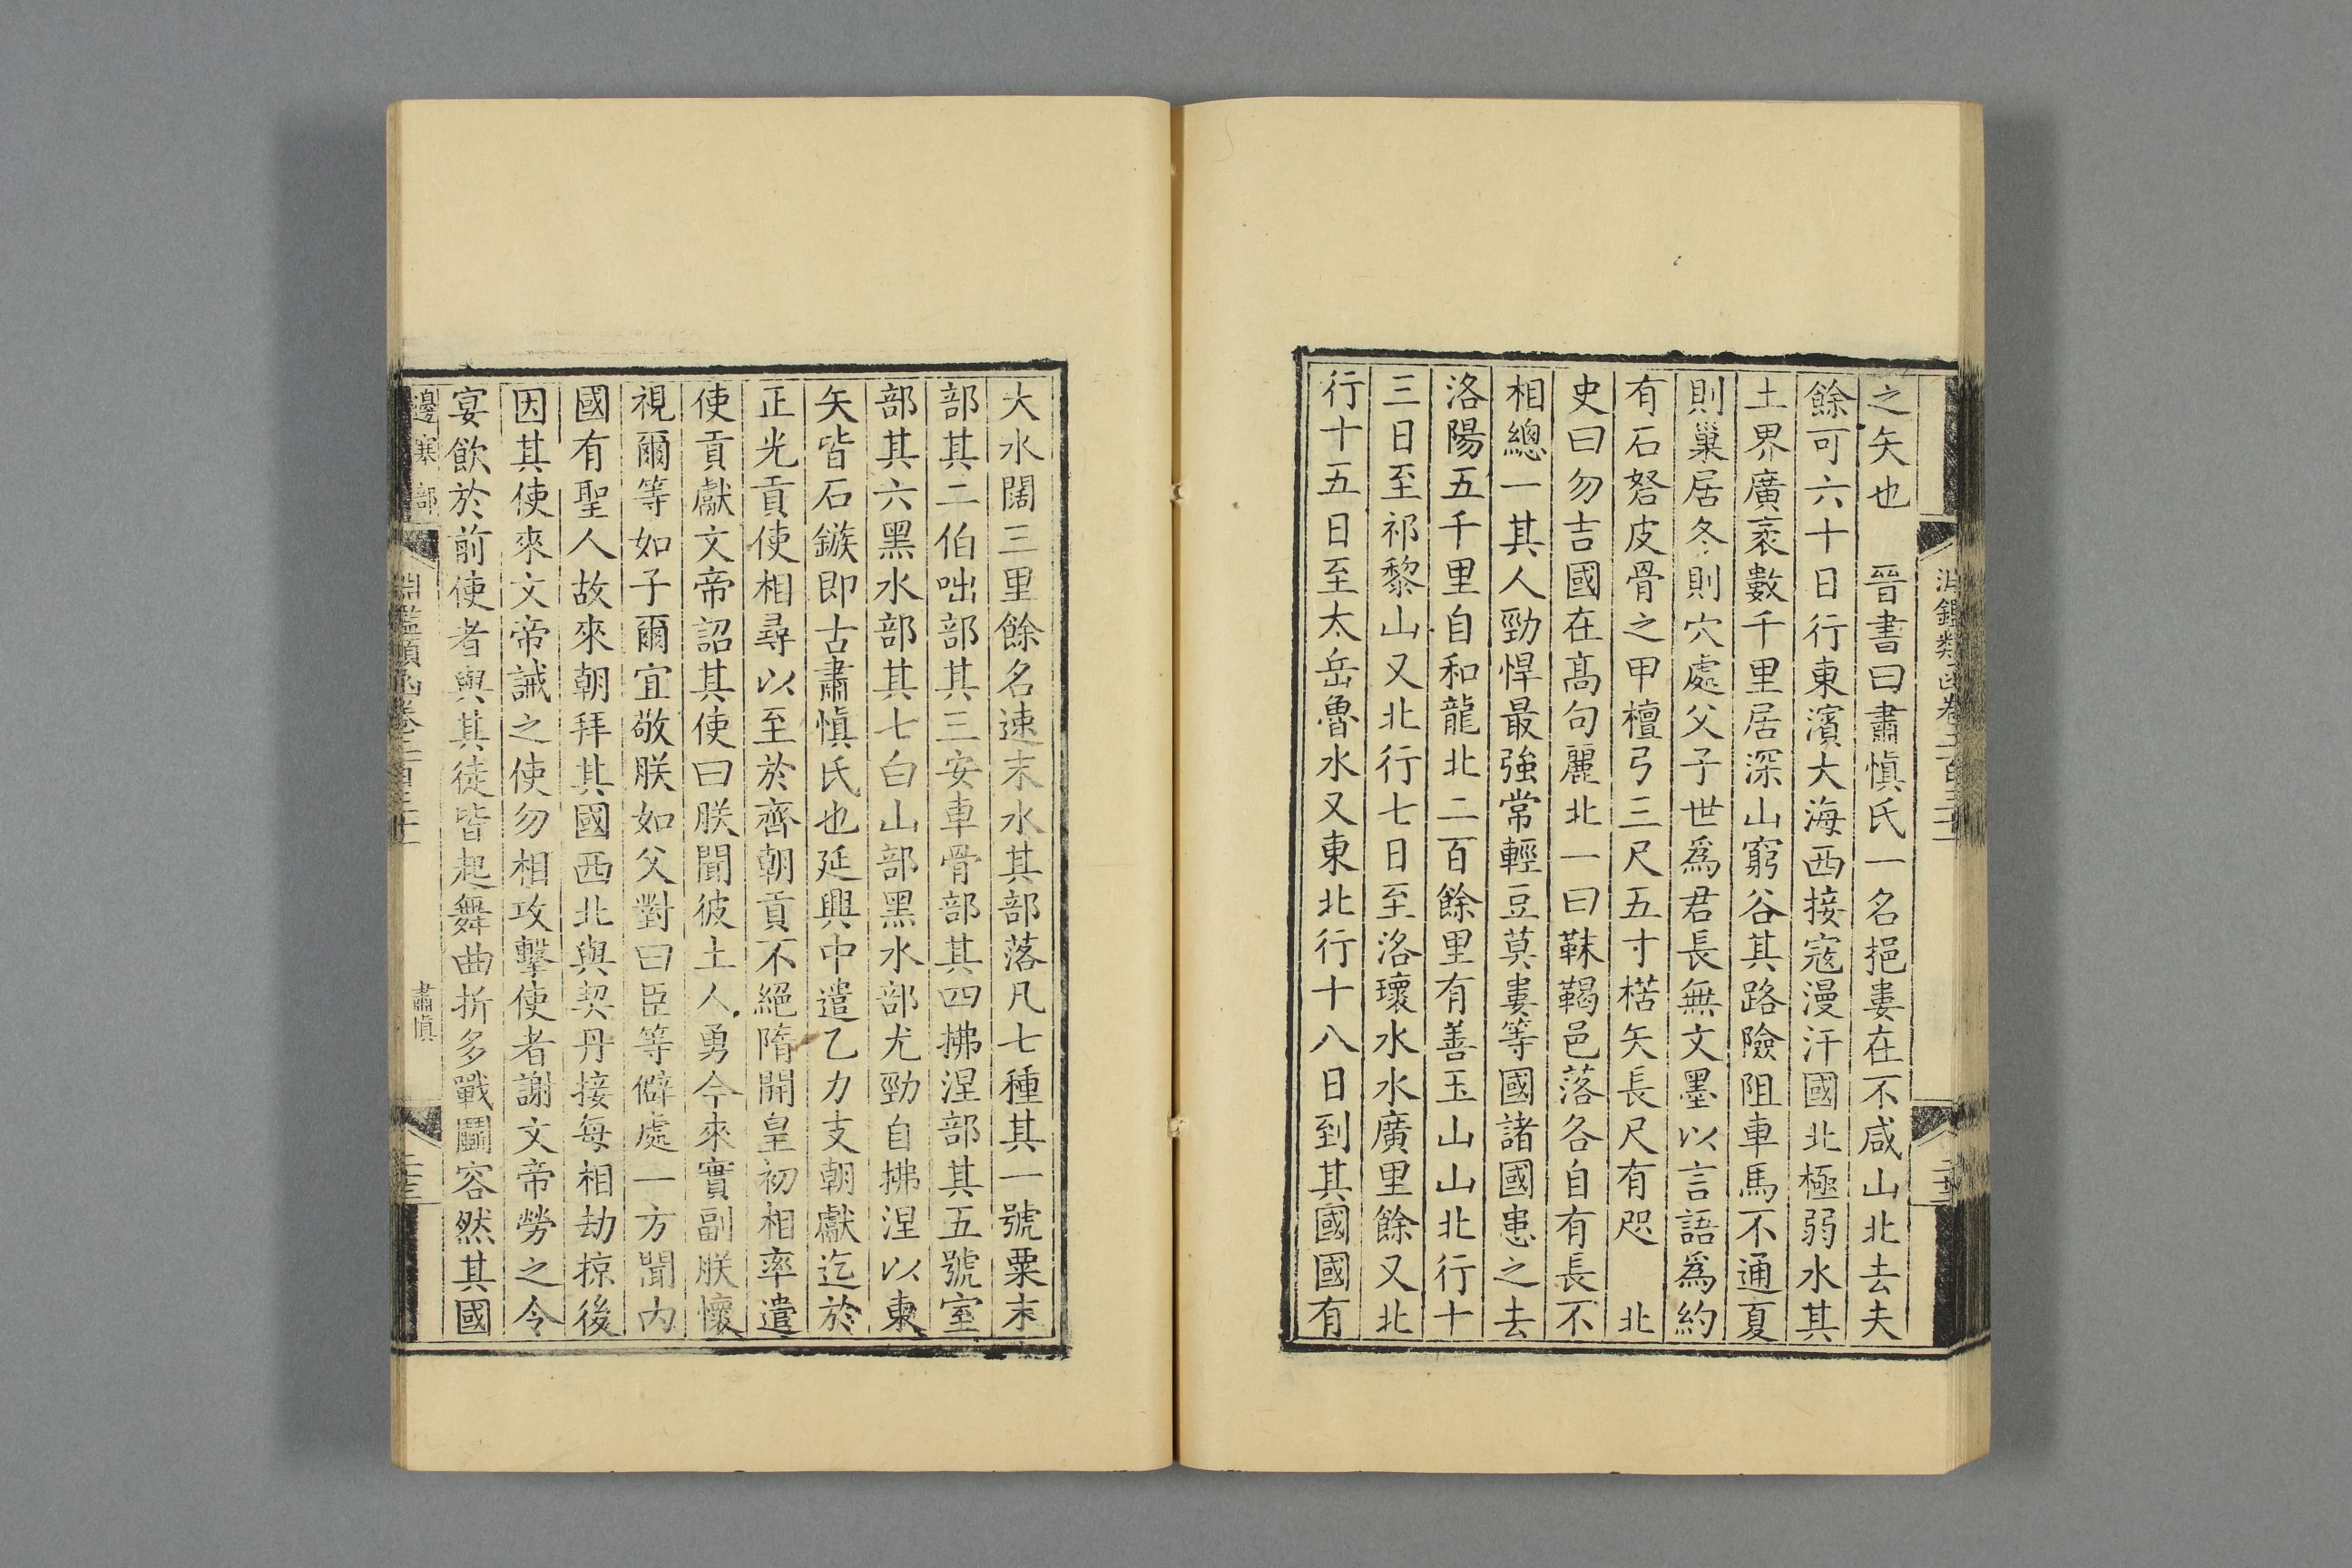 之矢也　晉書曰肅慎氏一名挹婁在不咸山北去夫
餘可六十日行東濱大海西接寇漫汗國北極弱水其
土界廣袤數千里居深山窮谷其路險阻車馬不通夏
則巢居冬則穴處父子世爲君長無文墨以言語爲約
有石砮皮骨之甲檀弓三尺五寸楛矢長尺有咫　北
史曰勿吉國在高句麗北一曰靺鞨邑落各自有長不
相總一其人勁悍最強常輕豆莫婁等國諸國患之去
洛陽五千里自和龍北二百餘里有善玉山山北行十
三日至祁黎山又北行七日至洛瓌水水廣里餘又北
行十五日至太岳魯水又東北行十八日到其國國有
大水闊三里餘名速末水其部落凡七種其一號粟末
部其二伯咄部其三安車骨部其四拂涅部其五號室
部其六黑水部其七白山部黑水部尤勁自拂涅以東
矢皆石鏃即古肅慎氏也延興中遣乙力支朝獻迄於
正光貢使相尋以至於齊朝貢不絕隋開皇初相率遣
使貢獻文帝詔其使曰朕聞彼土人勇今來實副朕懷
視爾等如子爾宜敬朕如父對曰臣等僻處一方聞内
國有聖人故來朝拜其國西北與契丹接每相劫掠後
因其使來文帝誡之使勿相攻擊使者謝文帝勞之令
宴飲於前使者與其徒皆起舞曲折多戰鬭容然其國
邊塞部
淵鑑類函卷二百三十一
肅慎